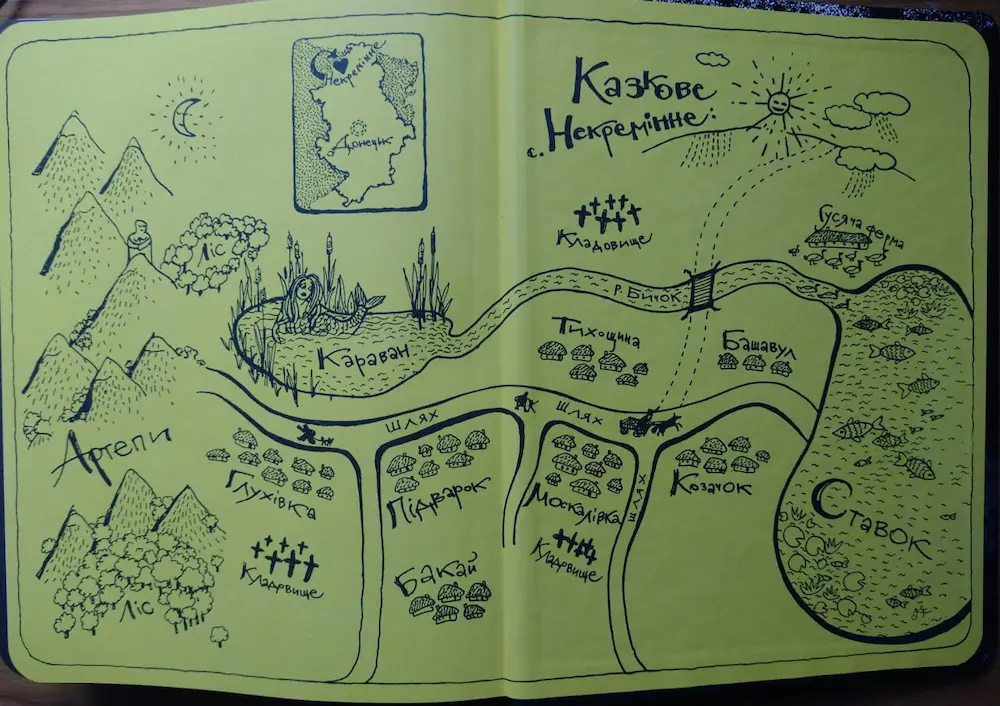 Некремінне
Донецьк
Казкове
с. Некремінне:
Ліс
Кладовище
Гусяча ферма
р. Бичок
Караван
Тихощина
Башавул
шлях
шлях
Артепи
Глухівка
Підварок
Москалівка
шлях
Козачок
Ставок
Кладовище
Бакай
Кладовище
Ліс